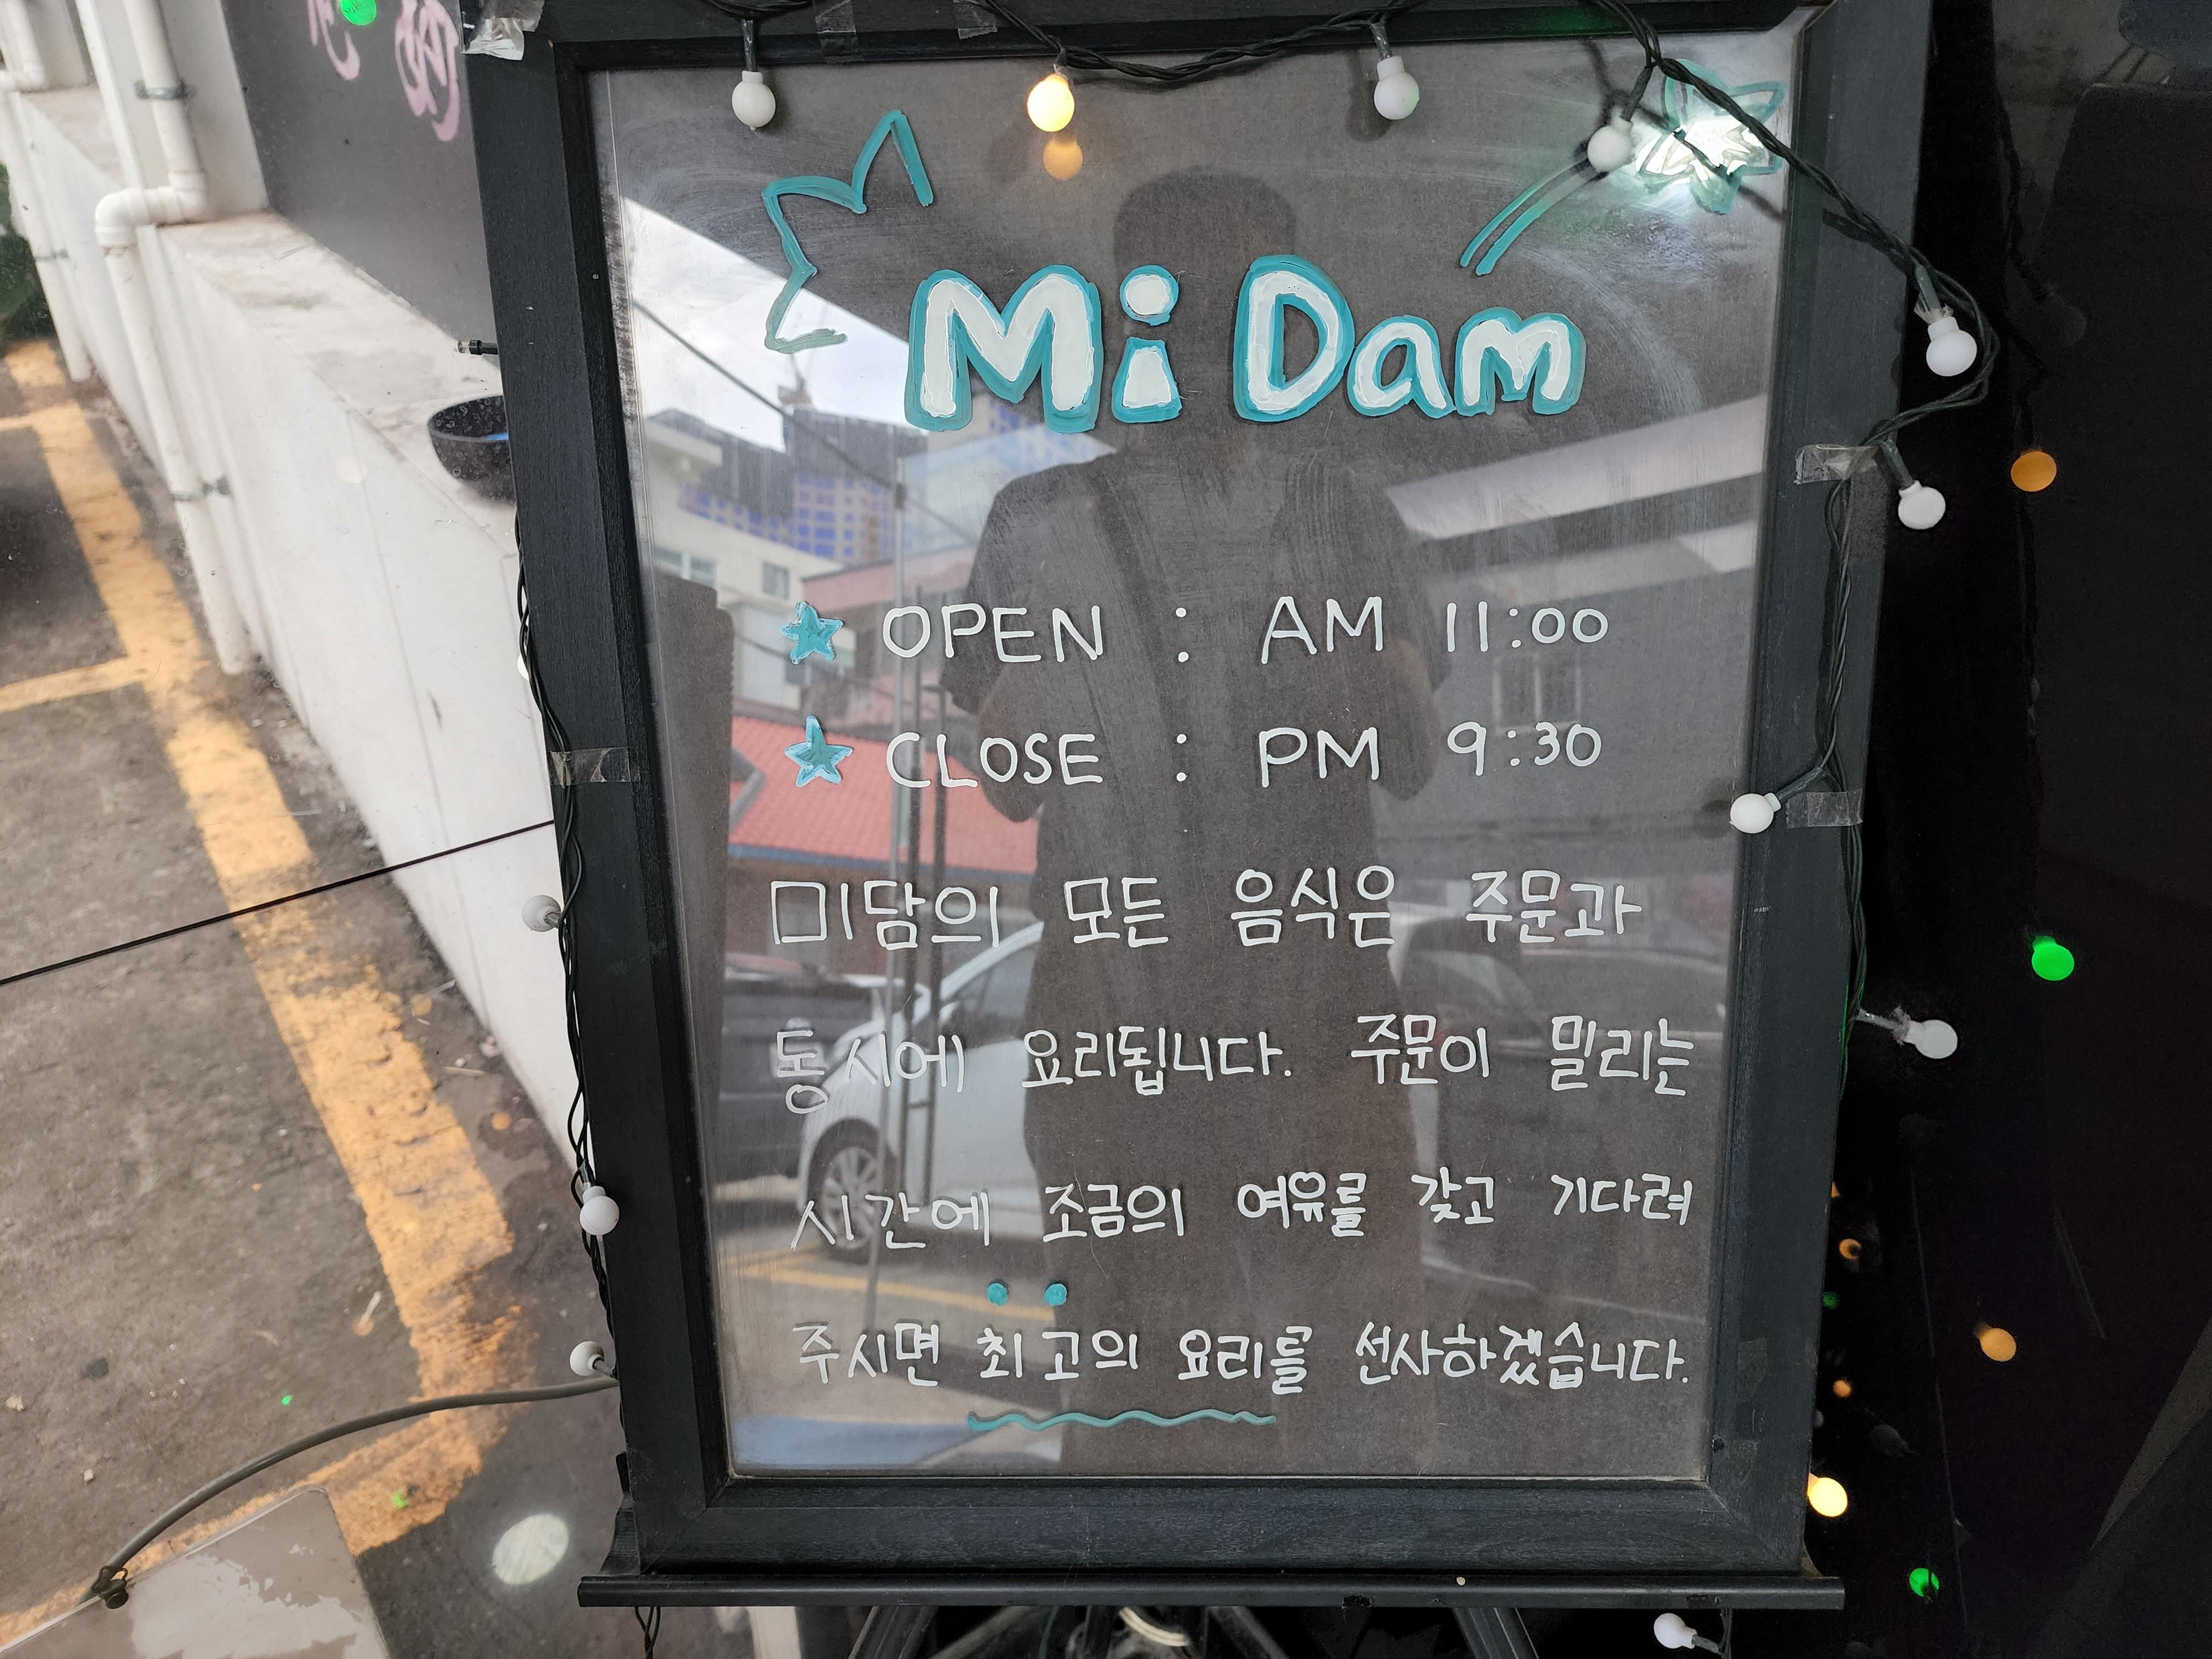 Mi Dam
OPEN : AM 11:00
CLOSE : PM 9:30
미담의 모든 음식은 주문과
동시에 요리됩니다. 주문이 밀리는
시간에 조금의 여유를 갖고 기다려
주시면 최고의 요리를 선사하겠습니다.